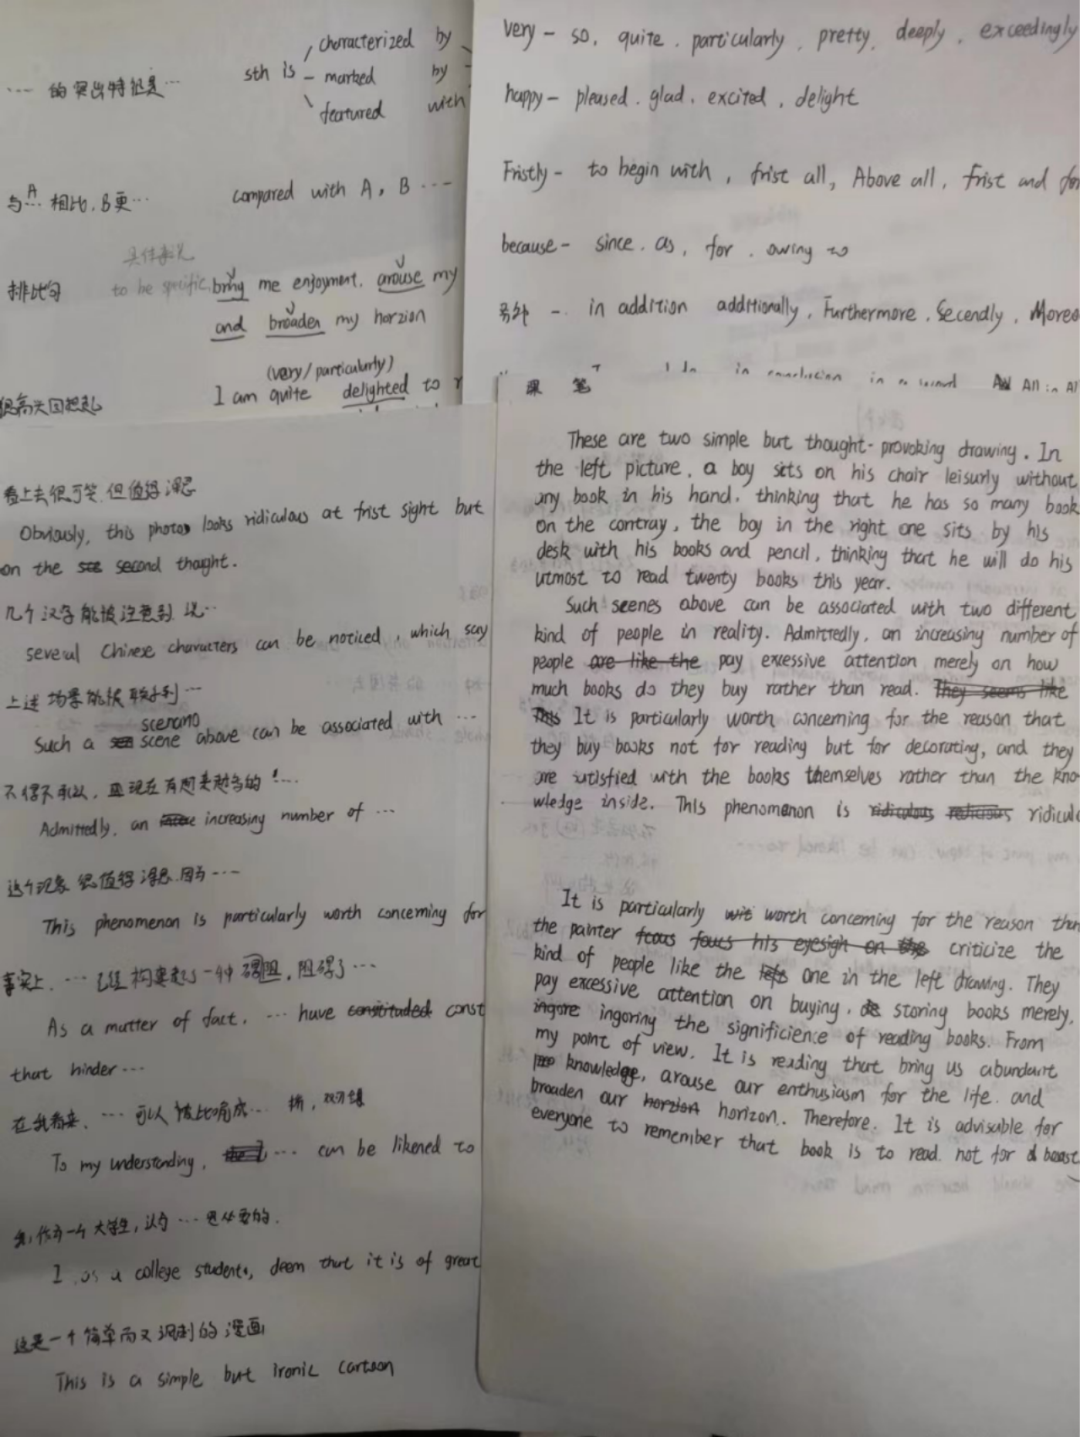 characterized by
…… 的突出特征是… sth is – marked by
featured with
与A…相比,B更… compared with A, B ……
具体来说
排比句 to be specific bring me enjoyment. arouse my
and broaden my horzion
(very/particularly)
I am quite delighted to
very – so, quite, particularly, pretty, deeply, exceedingly
happy – pleased, glad, excited, delight
Fristly – to begin with, frist all, Above all, frist and
because – since, as, for, owing to
另外 – in addition additionally, Furthermore, Secendly,
in conclusion in a word All in
看上去很可笑,但值得深思
Obviously, this photo looks ridiculous at frist sight but
on the second thought.
几个汉字能被注意到,说…
several Chinese characters can be noticed, which say
上述场景能被联想到…
scenario
Such a scene above can be associated with …
不得不承认,
Admittedly, an increasing number of …
这个现象很值得深思,因为……
This phenomenon is particularly worth concerning for
事实上,…已经构建起了一种碍阻,阻碍了…
As a matter of fact, … have constituded const
that hinder …
在我看来,…可以被比喻成…
To my understanding, … can be likened to
我,作为一个大学生,认为…是必要的.
I, as a college students, deem that it is of great
这是一个简单而又讽刺的漫画
This is a simple but ironic cartoon
课 笔
These are two simple but thought-provoking drawing. In
the left picture, a boy sits on his chair leisurly without
any book in his hand, thinking that he has so many book
on the contray, the boy in the right one sits by his
desk with his books and pencil, thinking that he will do his
utmost to read twenty books this year.
Such scenes above can be associated with two different
kind of people in reality. Admittedly, an increasing number of
people are like the pay excessive attention merely on how
much books do they buy rather than read. They seems like
This It is particularly worth concerning for the reason that
they buy books not for reading but for decorating, and they
are satisfied with the books themselves rather than the kno-
wledge inside. This phenomenon is ridiculous
It is particularly worth concerning for the reason
the painter focus his eyesigh on the criticize the
kind of people like the left one in the left drawing. They
pay excessive attention on buying, storing books merely,
ingore ingoring the significience of reading books. From
my point of view, It is reading that bring us abundant
knowledge, arouse our enthusiasm for the life and
broaden our horzion horizon. Therefore, It is advisable for
everyone to remember that book is to read not for boast